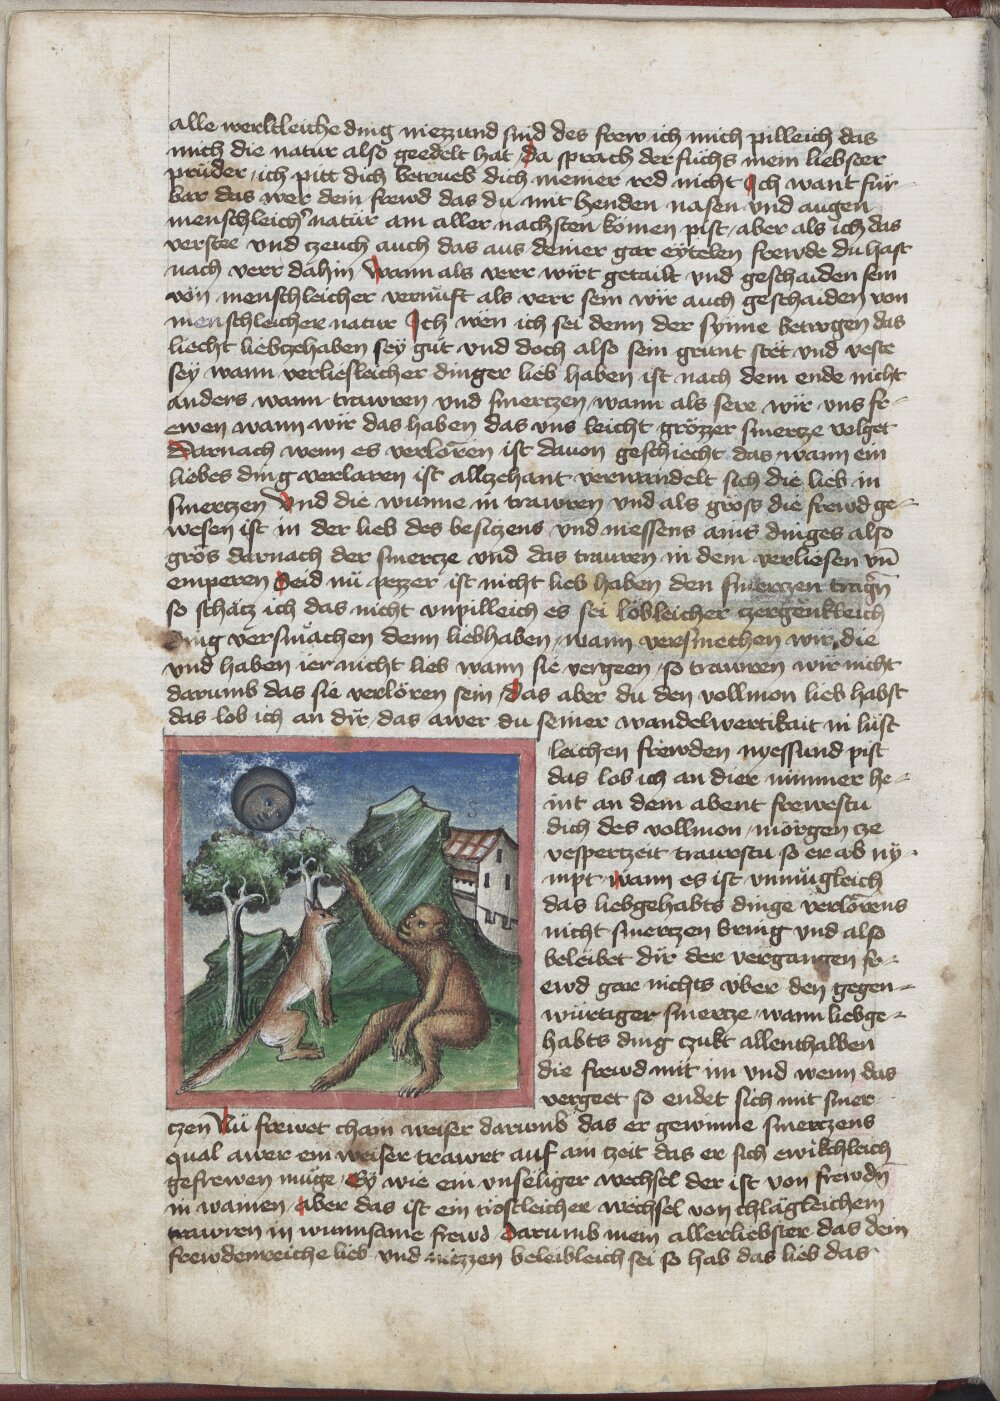 alle werltleiche ding niezzund sind des frew ich mich pilleich das
mich die natur also geedelt hat da sprach der fuchs mein liebster
prüder ich pitt dich betrueb dich meiner red nicht Ich want für-
bar das wer dein frewd das du mit henden nasen vnd augen
menschleicher natur am aller nachsten komen pist aber als ich das
verstee vnd czeuch auch das aus deiner gar eytelen frewde du hast
nach verr dahin Wann als verr wirt getailt vnd geschaiden sein
von menschleicher vernuft als verr sein wir auch geschaiden von
menschleicher natur Ich wen ich sei denn der synne betrogen das
liecht liebczehaben sey gut vnd doch also sein grunt stet vnd veste
sey wann verliesleicher dinger lieb haben ist nach dem ende nicht
anders wann trawren vnd smerczen wann als sere wir vns fr-
ewen wann wir das haben das vns leicht grözzer smercze volget
Darnach wenn es verloren ist dauon geschiecht das wann ein
liebes ding verlaren ist allczehant verwandelt sich die lieb in
smerczen Vnd die wunne in trawren vnd als gröss die frewd ge-
wesen ist in der lieb des besiczens vnd niessens ains dinges also
grös darnach der smercze vnd das trawren in dem verliesen vn̄
emperen Seid nu pezzer ist nicht lieb haben den smerczen tragn̄
so schacz ich das nicht vnpilleich es sei lobleicher czergenkleich
ding versmächen denn liebhaben wann versmechen wir die
vnd haben ier nicht lieb wann sie vergeen so trawren wir nicht
darumb das sie verloren sein das aber du den vollmon lieb habst
das lob ich an dir das awer du seiner wandelwertikait in lust
leichen frewden nyessund pist
das lob ich an dier nimmer he-
int an dem abent frewestu
dich des vollmon morgen cze
vesperczeit traurstu so er ab ny-
mpt wann es ist vnmugleich
das liebgehabts dinge verlorens
nicht smerczen bring vnd also
beleibet dir der vergangen fr-
ewd gar nichts vber den gegen-
würtiger smercze wann liebge-
habts ding czukt allenthalben
die frewd mit im vnd wenn das
vergeet so endet sich mit smer
czen Nu frewet chain weiser darumb das er gewinne smerczens
qual awer ein weiser trawrt auf ain czeit das er sich ewikchleich
gefrewen muge Ey wie ein vnseliger wechsel der ist von frewdn̄
in wainen aber das ist ein trostleicher wechsel von chlägleichem
trawren in wunnsame frewd Darumb mein allerliebster das dein
frewdenreiche lieb vnd niezzen beleibleich sei so hab das lieb das